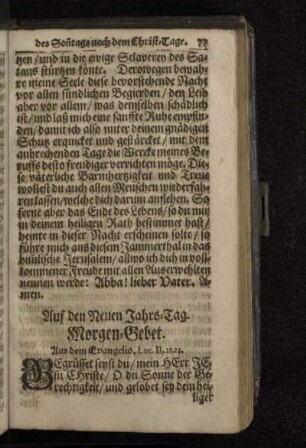 des Sontags nach dem Christ-Tage. 77
tzen/und in die ewige Sclaverey des Sa-
tans stürtzen könte. Derowegen bewah-
re meine Seele diese bevorstehende Nacht
vor allen sündlichen Begierden/ den Leib
aber vor allem/ was demselben schädlich
ist/ und laß mich eine sanffte Ruhe empfin-
den/ damit ich also unter deinem gnädigen
Schutz erquicket und gestärcket/ mit dem
anbrechenden Tage die Wercke meines Be-
ruffs desto freudiger verrichten möge. Die-
se väterliche Barmhertzigkeit und Treue
wollest du auch allen Menschen wiederfah-
ren lassen/ welche dich darum anflehen. So
ferne aber das Ende des Lebens/ so du mir
in deinem heiligen Rath bestimmet hast/
heinte in dieser Nacht erscheinen solte/ so
führe mich aus diesem Jammerthal in das
himlische Jerusalem/ allwo ich dich in voll-
kommener Freude mit allen Auserwehlten
nennen werde: Abba! lieber Vater. A-
men.
Auf den Neuen Jahrs-Tag.
Morgen-Gebet.
Aus dem Evangelio, Luc. II, 21.
BEgrüsset seyst du/ mein HErr JE-
su CHriste/ O du Sonne der Ge-
rechtigkeit/ und gelobet sey dein hei-
liger